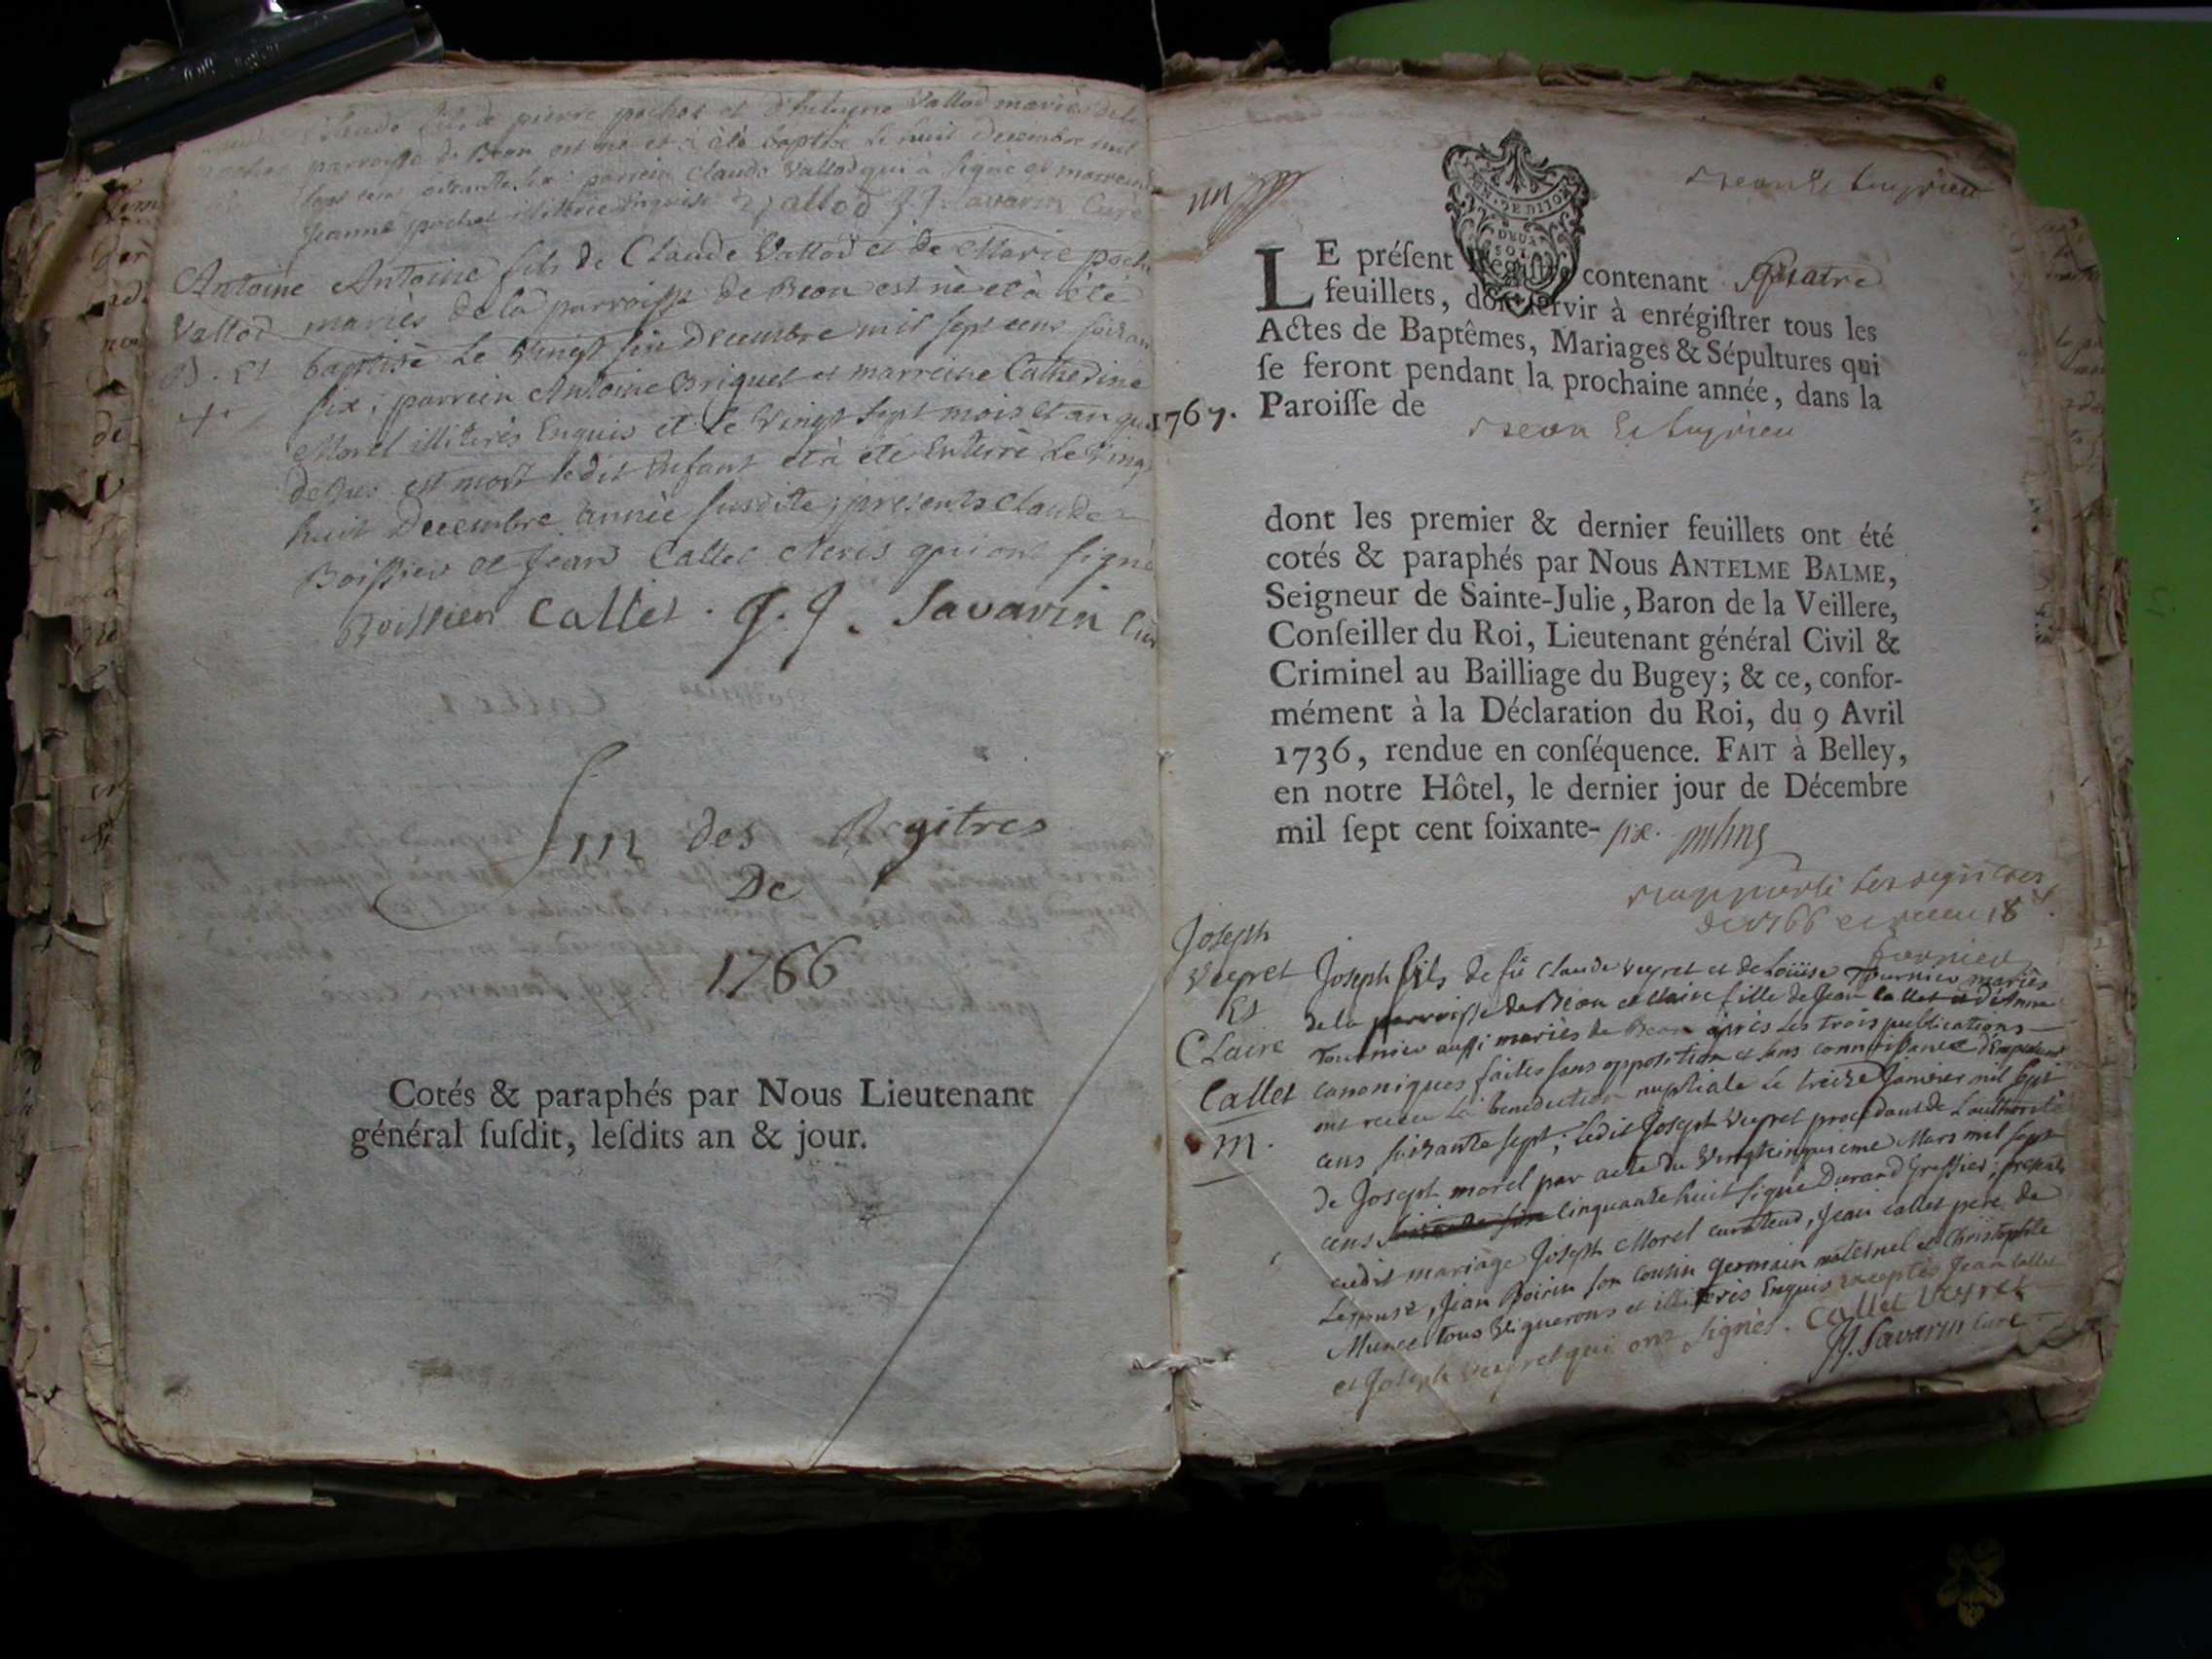 Claude fils de pierre pochet et d'heleyne Vallod mariès de la
parroisse de Beon est nè et à ètè baptisè le huit decembre mil
sept cens soixante six : parrein Claude Vallod qui à signè et marreine
Jeanne pochet illiterèe Enquise Vallod J J Savarin Curè
Antoine Antoine fils de Claude Vallod et de Marie poche
Vallod mariès de la parroisse de Beon est nè et à ètè
B. Et baptisè Le Vingt six Decembre mil sept cens soixan
+ six ; parrein Antoine Briquet et marreine Catherine
Morel illiterès Enquis et Le Vingt sept mois et an que
dessus est mort ledit Enfant et à ètè Enterrè Le Ving
huit Decembre annèe susditte ; presents Claude
Boissieu et Jean Callet clercs qui ont signè
Boissieu Callet . J. J. Savarin Cur
Fin des Regitres
De
1766
Cotés & paraphés par Nous Lieutenant
général ſuſdit, leſdits an & jour.
GEN. DE DIJON
DEUX
SOLS
LE préſent Régiſtre contenant Quatre
feuillets, doit ſervir à enrégiſtrer tous les
Actes de Baptêmes, Mariages & Sépultures qui
ſe feront pendant la prochaine année, dans la
1767. Paroiſſe de
Beon & Luyrieu
dont les premier & dernier feuillets ont été
cotés & paraphés par Nous ANTELME BALME,
Seigneur de Sainte-Julie, Baron de la Veillere,
Conſeiller du Roi, Lieutenant général Civil &
Criminel au Bailliage du Bugey ; & ce, confor-
mément à la Déclaration du Roi, du 9 Avril
1736, rendue en conſéquence. FAIT à Belley,
en notre Hôtel, le dernier jour de Décembre
mil ſept cent ſoixante- six.
rapporté les registres
de 1766
Joseph
Veyret
Et
Claire
Callet
m.
fornier
Joseph fils de fû Claude Veyret et de Loüise Tournier mariès
de la parroisse de Beon et Claire fille de Jean Callet et d'Anne
Tournier aussi mariès de Beon après les trois publications
canoniques faites sans opposition et sans connoissance d'Empechem
ont receu la benediction nuptiale le treize Janvier mil sept
cens soixante sept ; ledit Joseph Veyret procedant de L'authorité
de Joseph morel par acte du Vingtcinquieme Mars mil sept
cens cinquante huit signé Durand Greffier ; presents
audit mariage Joseph Morel curateur, Jean Callet pere de
L'epouse, Jean Poirin son cousin germain maternel et Christophle
Munet tous Vignerons et illiterès Enquis exceptès Jean Callet
et Joseph Veyret qui ont signès . Callet Veyret
JJ. Savarin Curè